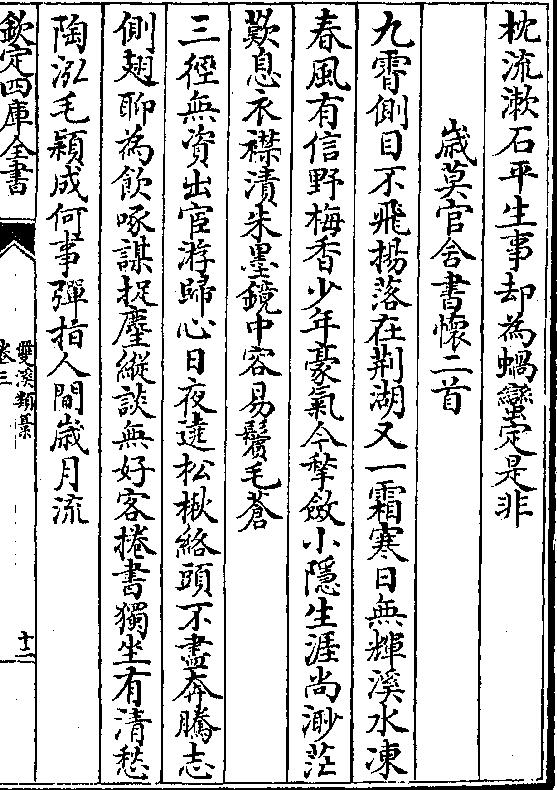 枕流漱石平生事却為蝸蠻定是非
歲莫官舍書懷二首
九霄側目不飛揚落在荆湖又一霜寒日無輝溪水凍
春風有信野梅香少年豪氣今摧斂小隱生涯尚渺茫
歎息衣襟漬朱墨鏡中容易鬢毛蒼
三徑無資出宦游歸心日夜遶松楸絡頭不盡奔騰志
側翅聊為飲啄謀捉麈縱談無好客捲書獨坐有清愁
陶泓毛穎成何事彈指人間歲月流
欽定四庫全書
雙溪類藁
卷三
十二